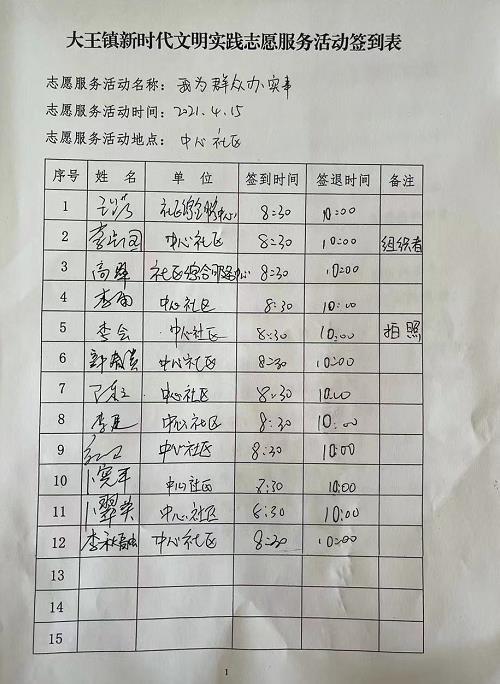 大王镇新时代文明实践志愿服务活动签到表
志愿服务活动名称：我为群众办实事
志愿服务活动时间：2021.4.15
志愿服务活动地点：中心社区
序号 姓名 单位 签到时间 签退时间 备注
1 社区综合服务中心 8:30 10:00
2 中心社区 8:30 10:00 组织者
3 高峰 社区综合服务中心 8:30 10:00
4 中心社区 8:30 10:00
5 李会 中心社区 8:30 10:00 拍照
6 中心社区 8:30 10:00
7 中心社区 8:30 10:00
8 中心社区 8:30 10:00
9 中心社区 8:30 10:00
10 中心社区 8:30 10:00
11 中心社区 8:30 10:00
12 中心社区 8:30 10:00
13
14
15
1